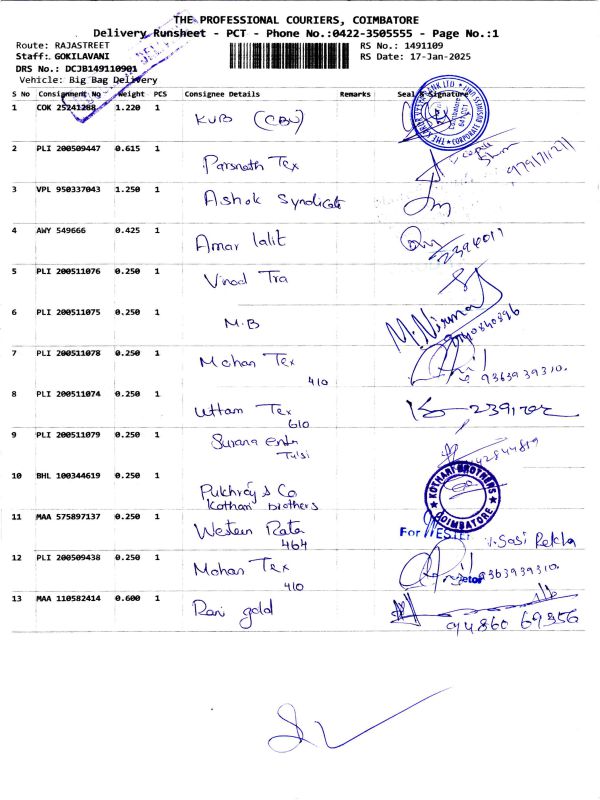 THE PROFESSIONAL COURIERS, COIMBATORE
Delivery Runsheet - PCT - Phone No.:0422-3505555 - Page No.:1
Route: RAJASTREET
RS No.: 1491109
Staff: GOKILAVANI
RS Date: 17-Jan-2025
DRS No.: DCJB149110901
Vehicle: Big Bag Delivery
S No Consignment No Weight PCS Consignee Details Remarks Seal & Signature
1 COK 25241288 1.220 1 KVB (CBN)
2 PLI 200509447 0.615 1 Parsnath Tex 9791711271
3 VPL 950337043 1.250 1 Ashok Syndicate
4 AWY 549666 0.425 1 Amar lalit 2394011
5 PLI 200511076 0.250 1 Vinod Tra
6 PLI 200511075 0.250 1 M.B M. Nirmal
7 PLI 200511078 0.250 1 Mohan Tex 410 9363939310.
8 PLI 200511074 0.250 1 Uttam Tex 610
9 PLI 200511079 0.250 1 Surana Entr Tulsi
10 BHL 100344619 0.250 1 Pukhraj & Co Kothari brothers
KOTHARI BROTHERS COIMBATORE
11 MAA 575897137 0.250 1 Western Rata 464 For WESTE V. Sasi Rekha
12 PLI 200509438 0.250 1 Mohan Tex 410 9363939310.
13 MAA 110582414 0.600 1 Rani gold 94860 69356